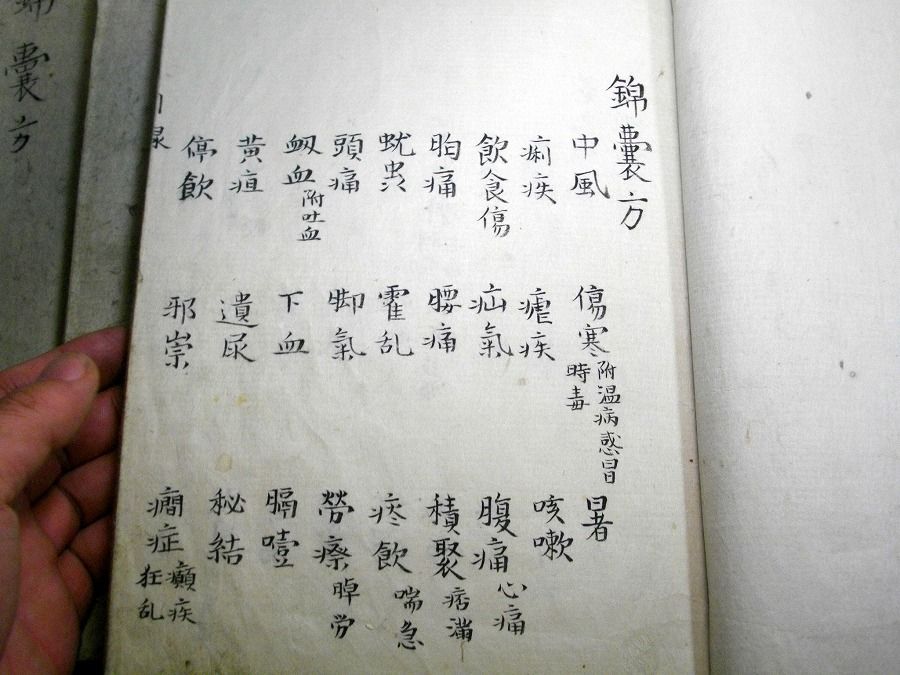 錦囊方
中風 傷寒 附温病感冒 時毒 暑
痢疾 瘧疾 咳嗽
飲食傷 疝氣 腹痛 心痛
胸痛 腰痛 積聚 痞滿
蚘虫 霍乱 痰飲 喘急
頭痛 脚氣 勞瘵 脾労
衂血 附吐血 下血 膈噎
黄疸 遺尿 秘結
停飲 邪崇 癇症 癲疾 狂乱
錦囊方